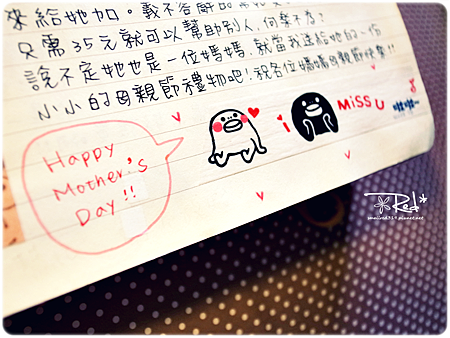 來給她加。義不容辭
只需35元就可以幫助別人,何樂不為?
說不定她也是一位媽媽,就當我送給她的一份
小小的母親節禮物吧!祝各位媽媽母親節快樂!!
Happy
Mother's
Day!!
i
MiSS U
Red